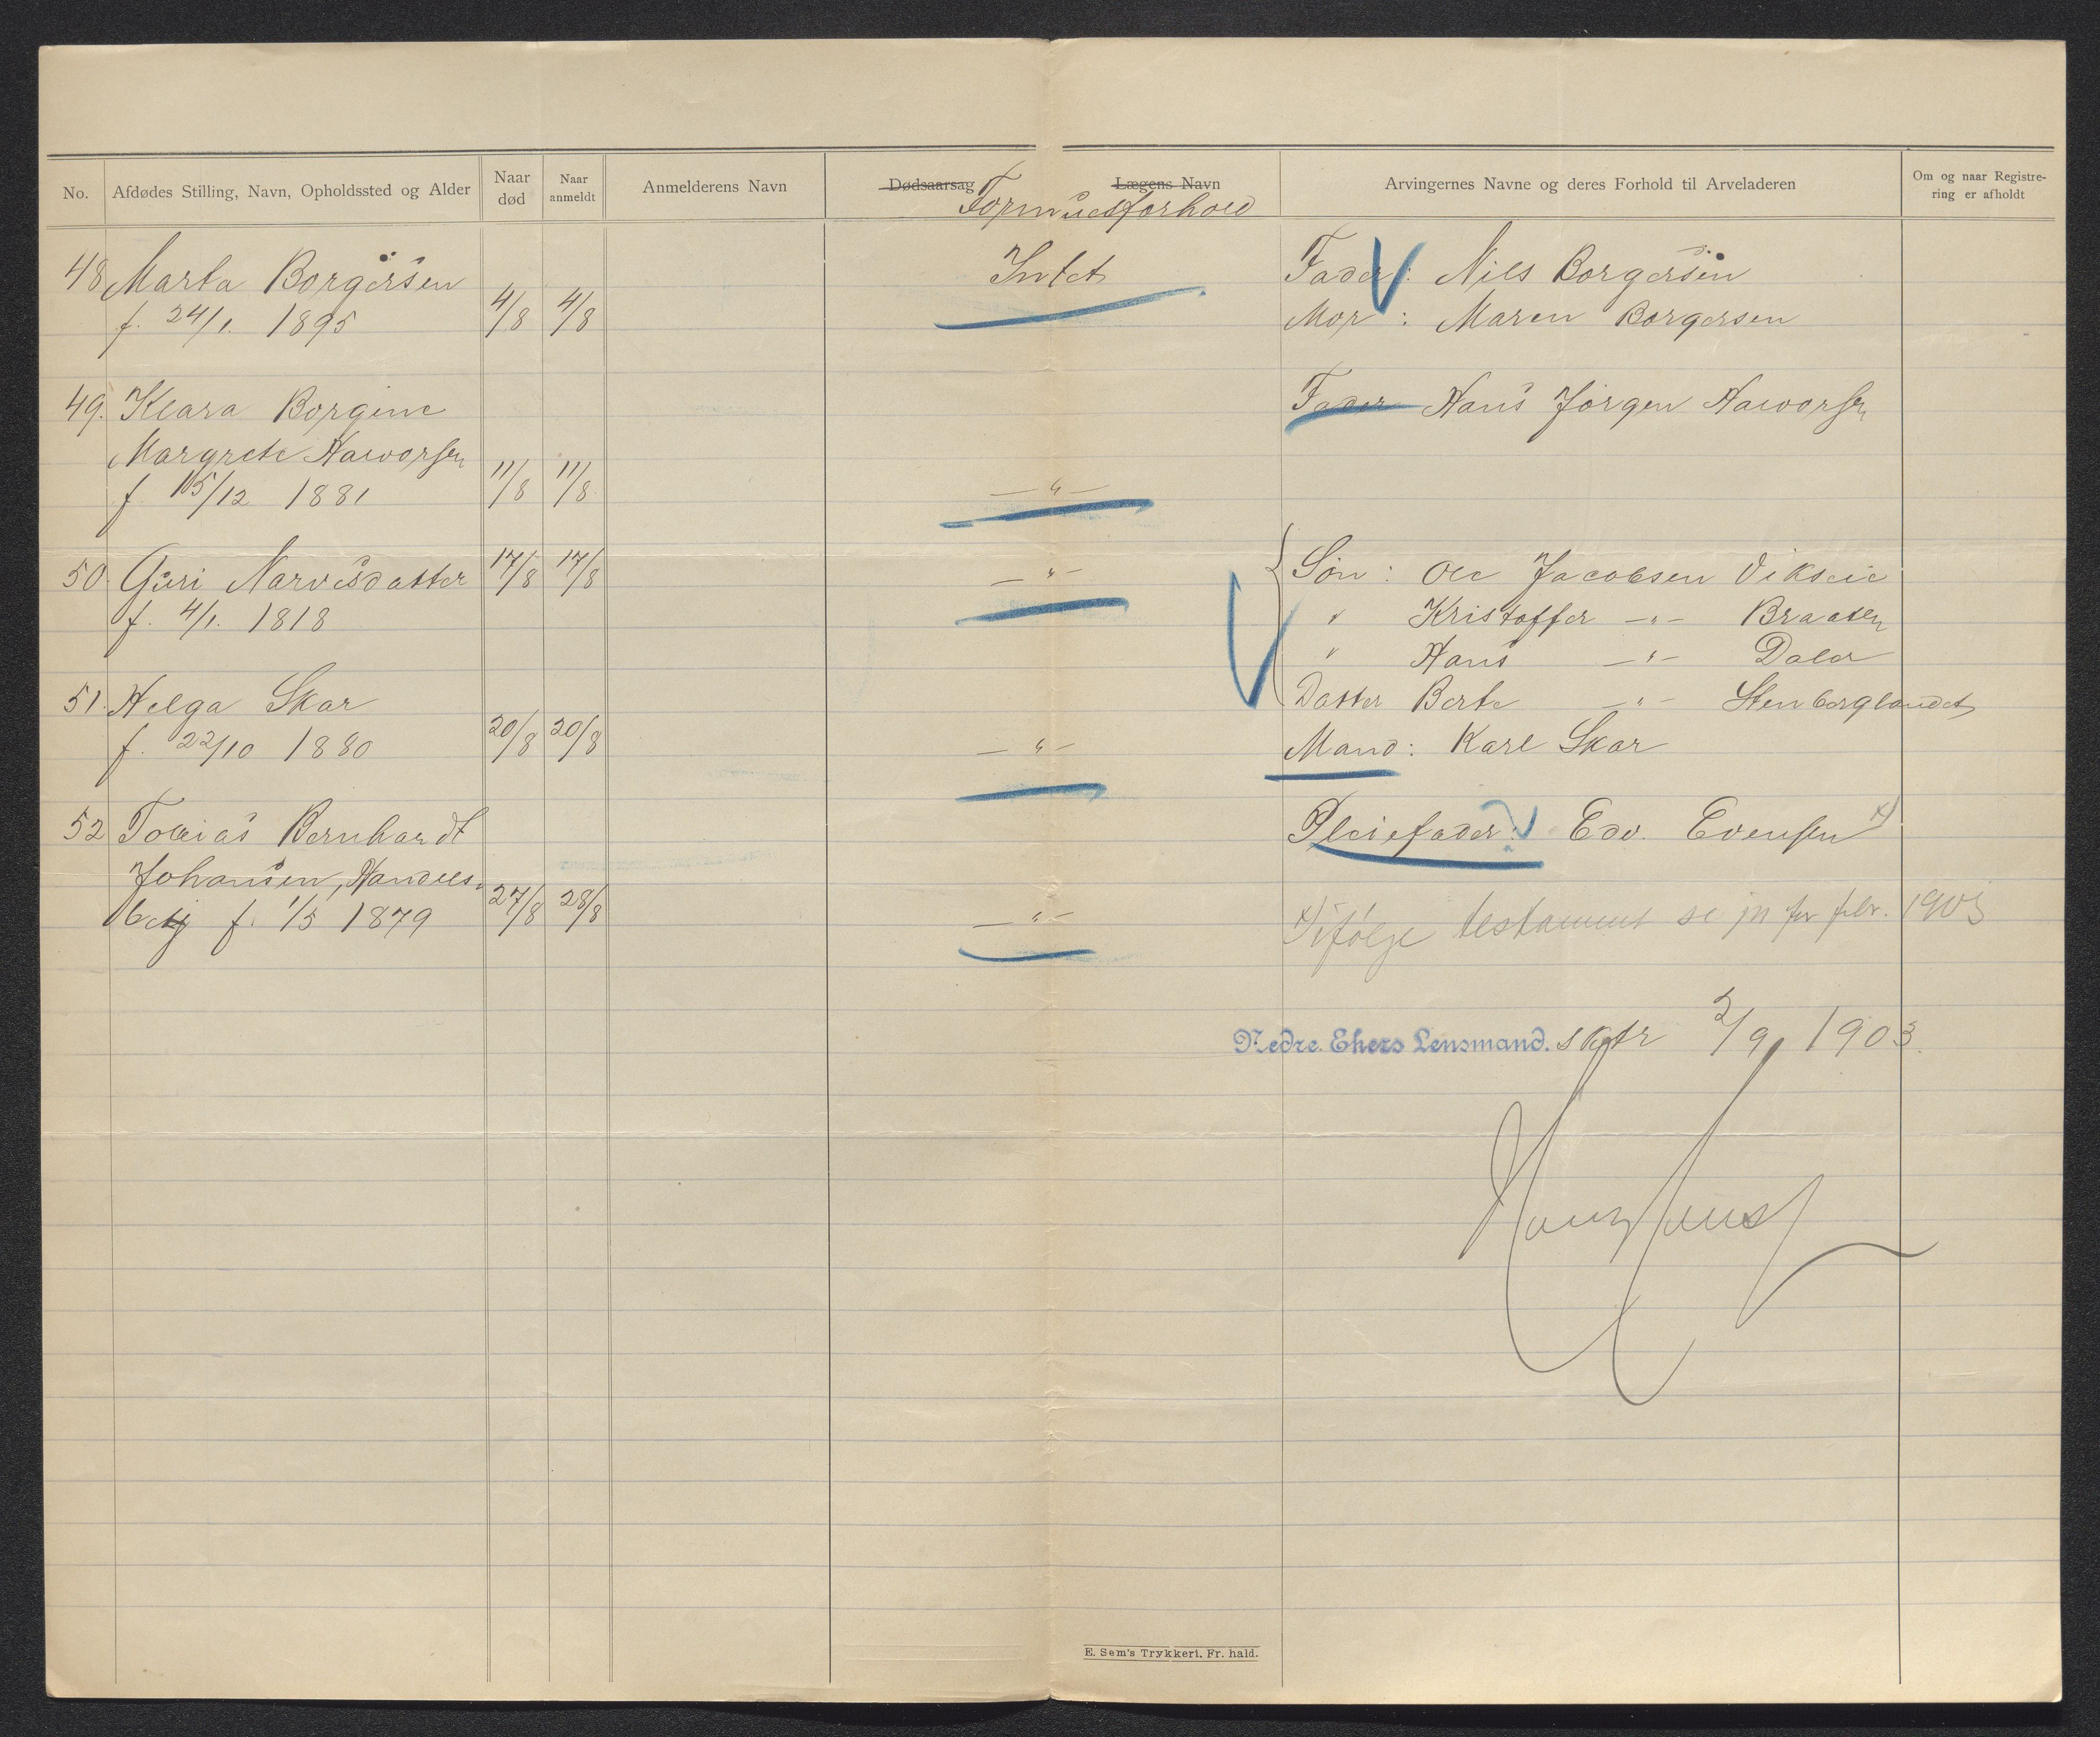 No. Afdødes Stilling, Navn, Opholdssted og Alder Naar død Naar anmeldt Anmelderens Navn Dødsaarsag Lægens Navn Arvingernes Navne og deres Forhold til Arveladeren Om og naar Registrering er afholdt
Formuesforhold
48 Marta Borgersen Intet Fader: Nils Borgersen
f. 24/1. 1895 4/8 4/8 Mor: Maren Borgersen
49. Klara Borgine Fader Hans Jørgen Haavorsen
Margrete Haavorsen
f. 15/12 1881 11/8 11/8 — " —
50 Guri Narvesdatter 17/8 17/8 — " — Søn: Ole Jacobsen Vikseie
f. 4/1. 1818 " Kristoffer — " — Braaten
" Hans — " — Daler
51. Helga Skar Datter Berte — " — Stenberglandet
f. 22/10 1880 20/8 20/8 — " — Mand: Karl Skar
52 Tobias Bernhardt Pleiefader: Edv. Evensen x)
Johansen, Handels-
betj f. 1/5 1879 27/8 28/8 — " — x) ifølge testament se jn for febr. 1903
Nedre Ekers Lensmand. sktr 2/9 1903.
E. Sem's Trykkeri, Fr.hald.